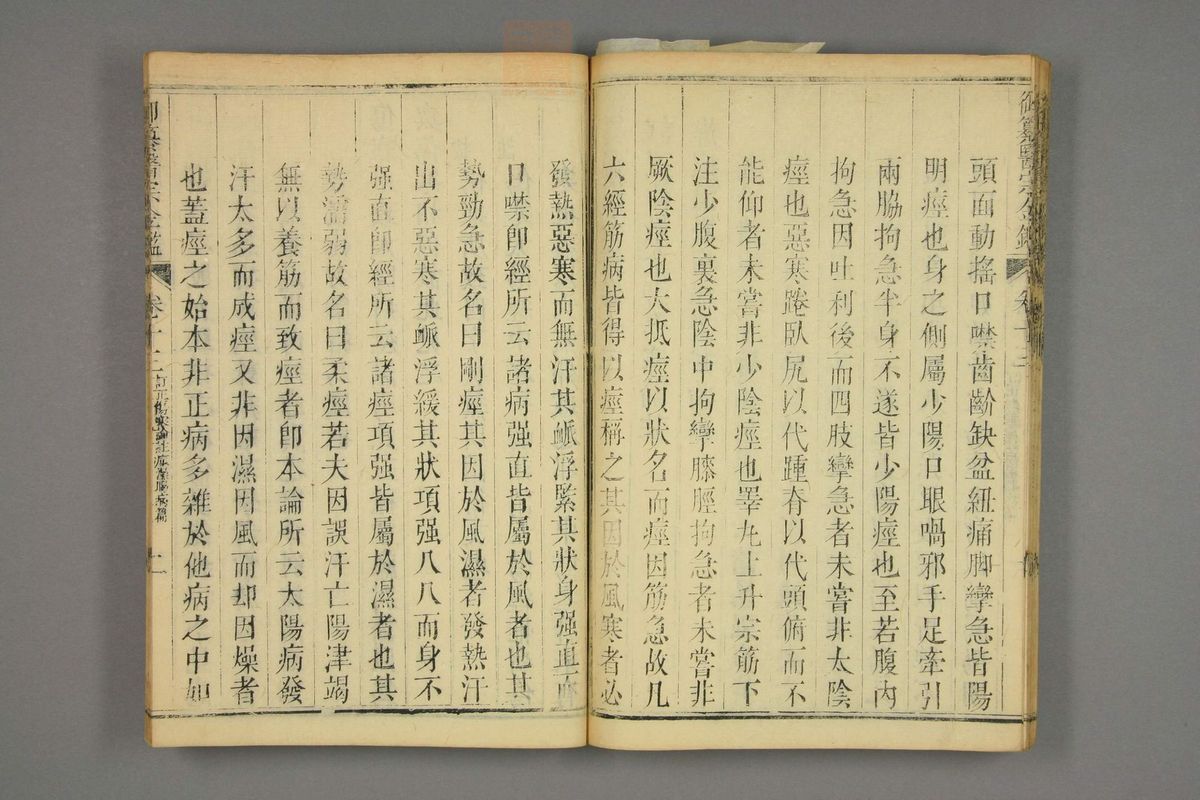 頭面動搖口噤齒齘缺盆紐痛脚攣急皆陽
明痙也身之側屬少陽口眼喎邪手足牽引
兩脇拘急半身不遂皆少陽痙也至若腹內
拘急因吐利後而四肢攣急者未嘗非太陰
痙也惡寒踡臥尻以代踵脊以代頭俯而不
能仰者未嘗非少陰痙也睪丸上升宗筋下
注少腹裏急陰中拘攣膝脛拘急者未嘗非
厥陰痙也大抵痙以狀名而痙因筋急故凡
六經筋病皆得以痙稱之其因於風寒者必
發熱惡寒而無汗其脈浮緊其狀身强直而
口噤卽經所云諸病强直皆屬於風者也其
勢勁急故名曰剛痙其因於風濕者發熱汗
出不惡寒其脈浮緩其狀項强八八而身不
强直卽經所云諸痙項强皆屬於濕者也其
勢濡弱故名曰柔痙若夫因誤汗亡陽津竭
無以養筋而致痙者卽本論所云太陽病發
汗太多而成痙又非因濕因風而却因燥者
也蓋痙之始本非正病多雜於他病之中如
御纂醫宗金鑑 卷十三